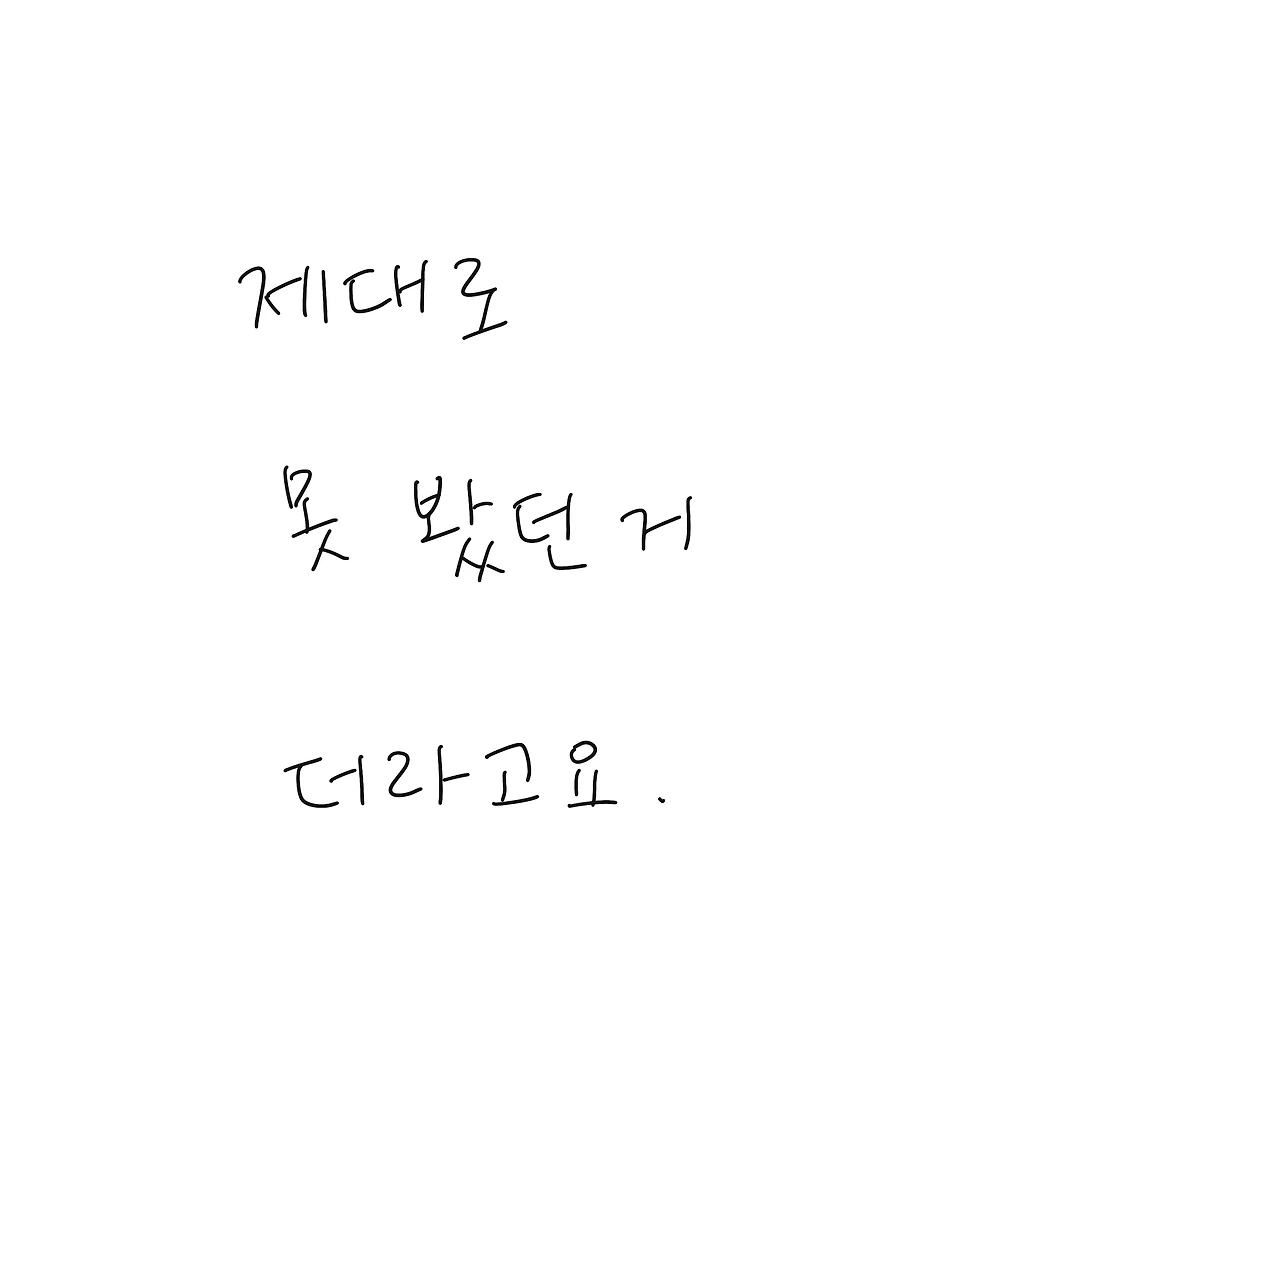 제대로
못 봤던 거
더라고요.